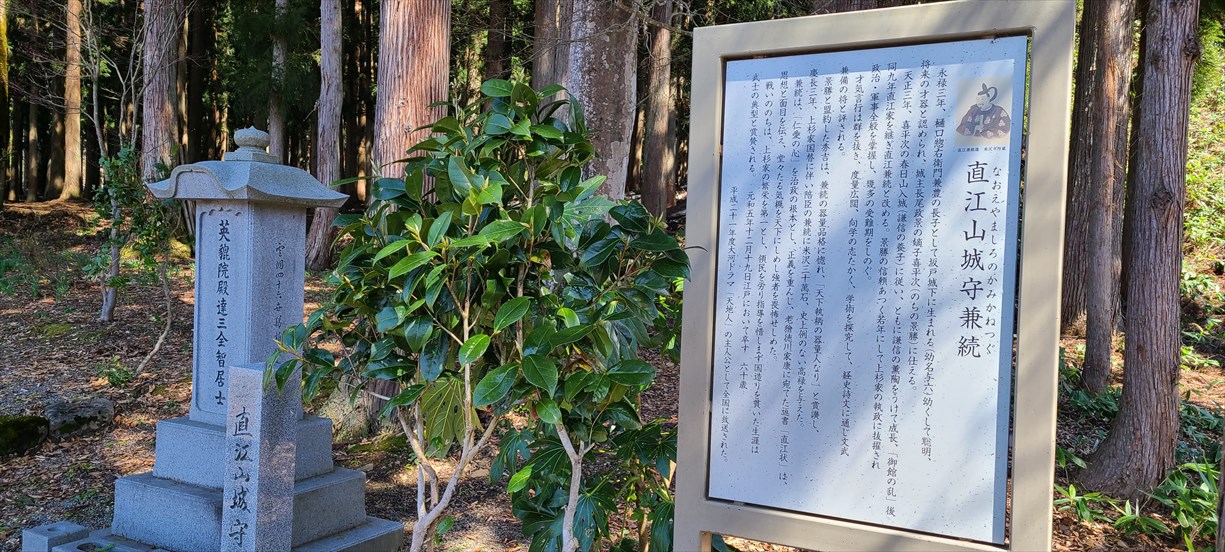 直江山城守兼続
なおえやましろのかみかねつぐ
永禄三年、樋口惣右衛門兼豊の長子として坂戸城下に生まれる(幼名与六)幼くして聡明、
将来の才器と認められ、城主長尾政景の嫡子喜平次(のちの景勝)に仕える。
天正三年、喜平次の春日山入城(謙信の養子)に従い、ともに謙信の薫陶をうけて成長、「御館の乱」後、
同九年直江家を継ぎ直江兼続と改める。景勝の信頼あつく若年にして上杉家の執政に抜擢され
政治・軍事全般を掌握し、境多の受難期をしのぐ。
才気言行は群を抜き、度量広闊、向学の志たかく、学術を探究して、経史詩文に通じ文武
兼備の将と評される。
景勝と盟約した秀吉は、兼続の器量品格に惚れ、「天下執柄の器量人なり」と賞讃し、
慶長三年、上杉家国替に伴い陪臣の兼続に米沢三十万石、史上例のない高禄を与えた。
兼続は、「仁愛の心」を治政の根本とし、正義を重んじ、老獪徳川家康に宛てた返書「直江状」は、
思想と面目を伝え、堂々たる気概を天下にしめし強者を畏怖せしめた。
戦いののちは、上杉家の繁栄を第一とし、領民を労り指導を惜しまず国造りを貫いた生涯は
武士の典型と賞賛される。 元和五年十二月十九日江戸において卒す 六十歳
平成二十一年度大河ドラマ「天地人」の主人公として全国に放送された。
英貔院殿達三全智居士
直江山城守